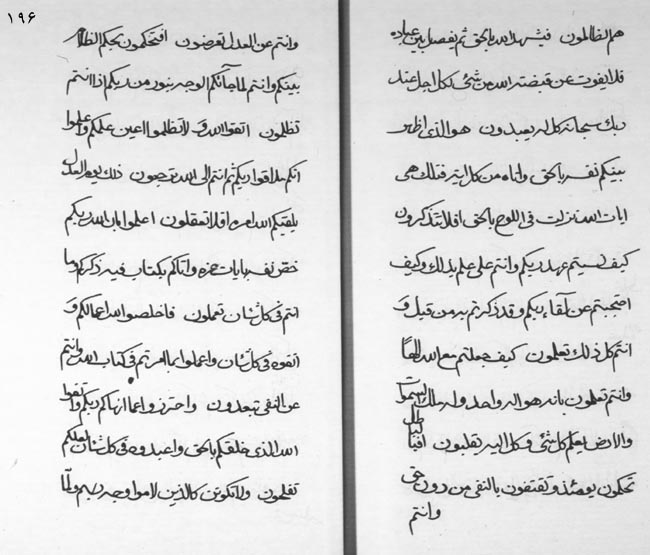 ١٩۶
هم الظالمون فيشهد الله بالحق ثم يفصل بين عباده
فلا يفوت عن قبضته الله من شئ لكل اجل عند
ربك سبحانه كل له يعبدون هو الذى اظهر
بينكم نفسه بالحق واتاه من كل ايته فتلك هى
ايات الله نزلت فى اللوح بالحق افلا تتذكرون
كيف نسيتم عهد ربكم وانتم على علم بذلك وكيف
احتجبتم عن لقاء ربكم وقد ذكرتم به من قبل و
انتم كل ذلك تعلمون كيف جعلتم مع الله الهًا
وانتم تعلمون بانه هو اله واحد وله ملك السموات
والارض يعلم كل شئ وكل اليه تقلبون
تحكمون يومئذ و بالنفى من دون حق
وانتم
وانتم عن العدل تعرضون افتحكمون بحكم الظلم
بينكم وانتم لما جائكم الوجه بنور من ربكم اذا انتم
تظلمون اتقوا الله و لا تظلموا عن علمكم واعلموا
انكم ملاقوا ربكم ثم انتم الى الله ترجعون ذلك يوم العدل
يلقيكم الله امره افلا تعقلون اعلموا بان الله ربكم
خص نفسه بايات واتاكم بكتاب فيه ذكركم وما
انتم فى كل شان تعملون فاخلصوا لله اعمالكم و
اتقوه فى كل شان واعملوا بما امرتم فى كتاب الله وانتم
عن النفى تبعدون واحترزوا عما نهاكم ربكم واتقوا
الله الذى خلقكم بالحق واعبدوه فى كل شان لعلكم
تفلحون ولا تكونن كالذين لاموا وجه ربهم ولما